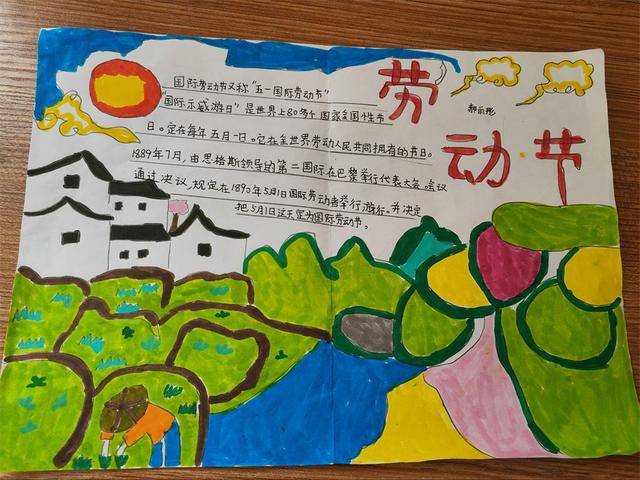 劳动节
郝丽彤
国际劳动节又称"五一国际劳动节"
"国际示威游日"是世界上80多个国家全国性节
日。定在每年五月一日。它在全世界劳动人民共同拥有的节日。
1889年7月,由恩格斯领导的第二国际在巴黎举行代表大会。会议
通过决议,规定在1890年5月1日国际劳动者举行游行。并决定
把5月1日这天定为国际劳动节。